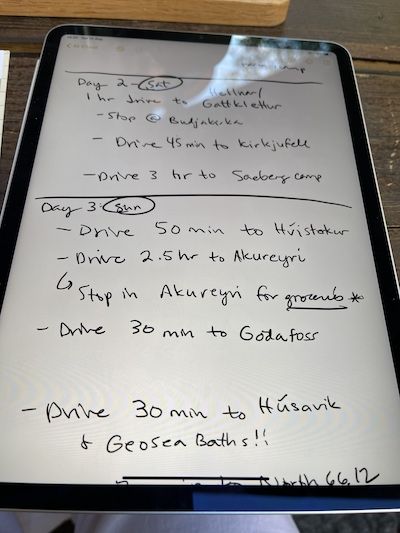 camp
Day 2 - Sat
Hellnar/
1 hr drive to Gattklettur
- Stop @ Budjakirkja
- Drive 45 min to Kirkjufell
- Drive 3 hr to Saeberg camp
Day 3: Sun
- Drive 50 min to Hvistekur
- Drive 2.5 hr to Akureyri
↳ Stop in Akureyri for groceries *
- Drive 30 min to Godafoss
- Drive 30 min to Húsavik
& Geosea Baths!!
North 66.12